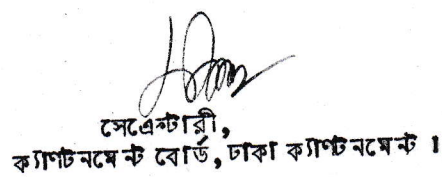 সেক্রেটারী,
ক্যাণ্টনমেন্ট বোর্ড, ঢাকা ক্যাণ্টনমেন্ট ।